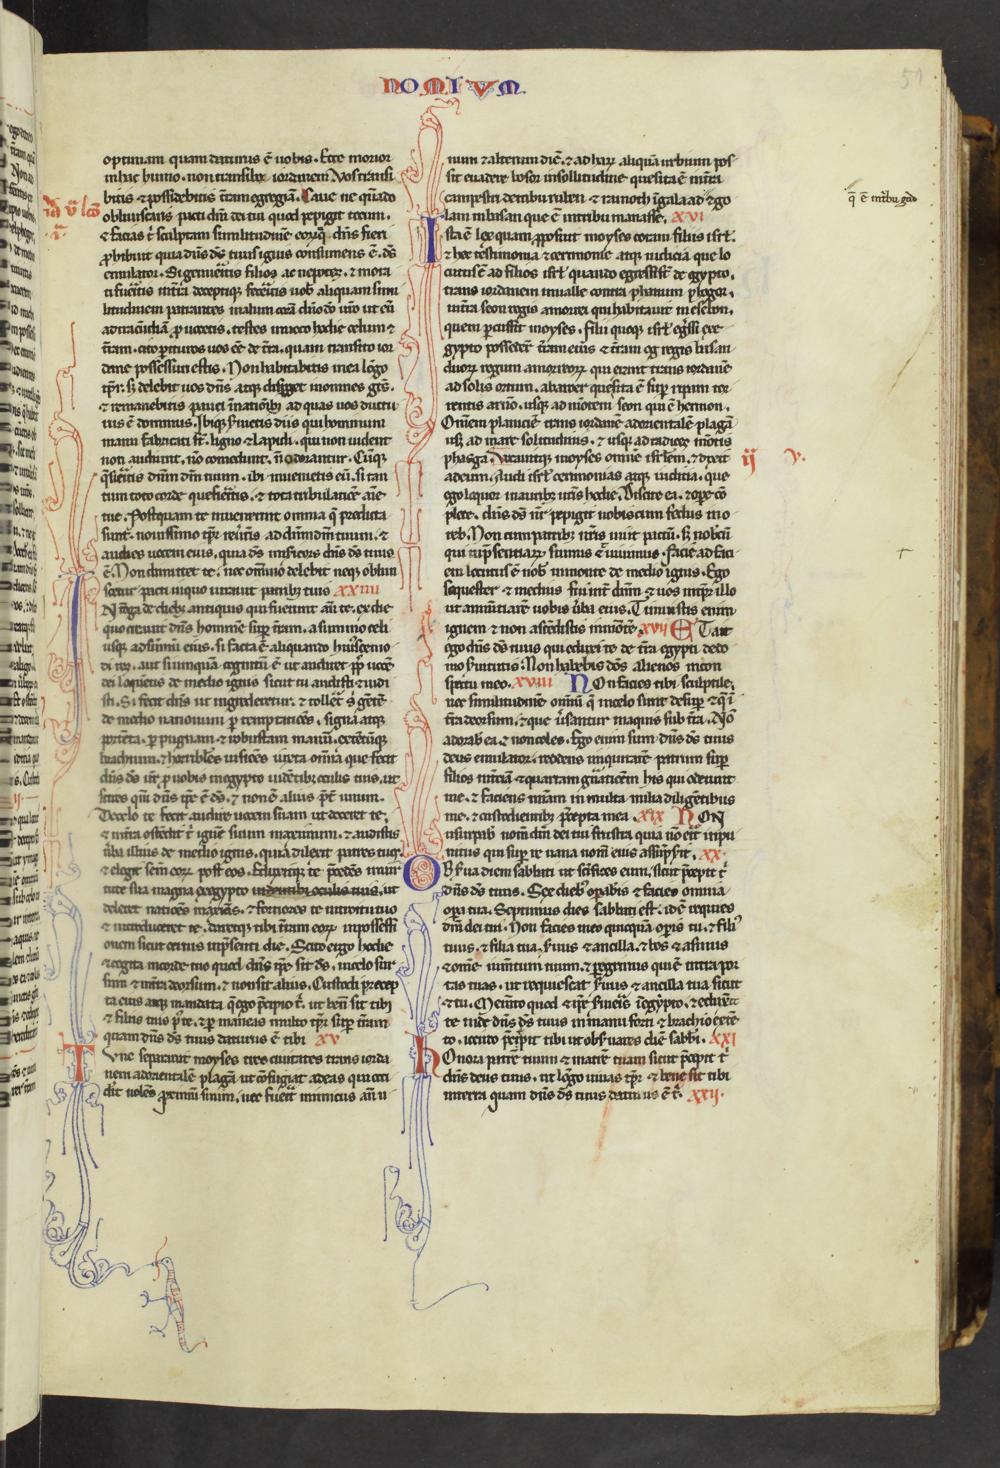 NOMIVM
51
optimam quam daturus ē uobis. Ecce morior
in hac humo. non transibo iordanem. Vos transi
bitis et possidebitis t̄ram egregiā. Caue ne quādo
obliuiscaris pacti dn̄i dei tui quod pepigit tecum.
et facias t̄ sculptam similitudinē eorꝝ que dn̄s fieri
ꝓhibuit quia dn̄s ds̄ tuus ignis consumens ē. ds̄
emulator. Si genuitis filios ac nepotes. et mora
ti fueritis in t̄ra deceptique feceritis uob̄ aliquam simi
litudinem patrantes malum corā dn̄o dō ur̄o ut eū
ad iracūdiā ꝓuocetis. testes inuoco hodie celum et
t̄ram. cito perituros uos eē de t̄ra. quam transito ior
dane possessuri estis. Non habitabitis in ea lōgo
tp̄r. sꝫ delebit uos dn̄s atque disperget in omnes gēs.
et remanebitis pauci in nationibꝫ ad quas uos ductu
rus ē dominus. Ibique seruietis diis qui hominum
manu fabricati st̄. ligno et lapidi. qui non uident
non audiunt. nō comedunt. n̄ odorantur. Cūque
quesieritis dn̄m dm̄ tuum. ibi inuenietis eū. si tan
tum toto corde quesieritis. et tota tribulatiōe aīe
tue. Postquam te inuenerint omnia que predicta
sunt. nouissimo tp̄r reuertis ad dn̄m dm̄ tuum. et
audies uocem eius. quia ds̄ misericors dn̄s ds̄ tuus
ē. Non dimittet te. nec omnino delebit neque obliui
scetur pacti in quo iurauit patribꝫ tuis XXIIII
Nterroga de diebꝫ antiquis qui fuerunt an̄ te. ex die
quo creauit dn̄s hominē super t̄ram. a summo celi
usque ad summū eius. si facta ē aliquando huiuscemo
di res. aut si umquā cognitū ē ut audiret pp̄ls uocē
dei loquētis de medio ignis sicut tu audisti et uidi
sti. Si fecit ds̄ ut ingrederetur. et tolleret s̄ gētē
de medio nationum per temptatiōes. signa atque
portēta. per pugnam et robustam manū. extētūque
brachium. et horribiles uisiōes iuxta omnia que fecit
dn̄s ds̄ ur̄ pro uobis in egypto uidētibꝫ oculis tuis. ut
scires qm̄ dn̄s ipse ē ds̄. et non ē alius pret̄ unum.
De celo te fecit audire uocem suam ut doceret te.
et in t̄ra ostēdit t̄ ignē suum maximum. et audistis
uerba illius de medio ignis. quia dilexit patres tuos.
et elegit sem̄ eorꝝ post eos. Eduxitque te precedēs in uir
tute sua magna ex egypto in dentibꝫ oculis tuis. ut
deleret natiōes maximas. et fortiores te in introitu tuo
et introduceret te. daretque tibi t̄ram eorꝝ in possessi
onem sicut cernis in presenti die. Scito ergo hodie
et cogita in corde tuo quod dn̄s ipse sit ds̄. in celo sur
sum et in t̄ra deorsum. et non sit alius. Custodi precep
ta eius atque mandata que ego precipio t̄. ut bene sit tibi
et filiis tuis post te. et permaneas multo tp̄r super t̄ram
quam dn̄s ds̄ tuus daturus ē tibi XV
Tunc separauit moyses tres ciuitates trans iorda
nem ad orientalē plagā ut cōfugiat ad eas qui occi
derit nolēs proximū suum. nec fuerit inimicus an̄ u
num et alterum diē. et ad harum aliquā urbium pos
sit euadere bosor in solitudine que sita ē in t̄ra
campestri de tribu ruben et ramoth in galaad et go
lam in basan que ē in tribu manasse. XVI
Ista ē lex quam proposuit moyses coram filiis isrl̄.
et hec testimonia et cerimonie atque iudicia que lo
cutus ē ad filios isrl̄ quando egressi st̄ de egypto.
trans iordanem in ualle contra phanum phegor.
in t̄ra seon regis amorrei qui habitauit in esebon.
quem percussit moyses. filii quoque isrl̄ egressi ex e
gypto possederunt t̄ram eius et t̄ram og regis basan
duorꝝ regum amorreorꝝ qui erant trans iordanē
ad solis ortum. ab aroer que sita ē super ripam tor
rentis arnō. usque ad mōtem seon qui ē hermon.
Omnem planiciē trans iordanē ad orientalē plagā
usꝫ ad mare solitudinis. et usque ad radices mōtis
phasga. Vocauitque moyses omnē isrl̄em. et dixit
ad eum. Audi isrl̄ cerimonias atque iudicia. que
ego loquor in auribꝫ uris hodie. Discite ea. et opere cō
plete. dn̄s ds̄ nr̄ pepigit nobiscum fedus in o
reb. Non cum patribꝫ nr̄is iniit pactū. sꝫ nobcū
qui in presentiarꝝ sumus et uiuimus. facie ad faci
em locutus ē nob̄ in monte de medio ignis. Ego
sequester et medius fui int̄ dn̄m et uos in tp̄r illo
ut annūtiarem uobis uerba eius. Timuistis enim
ignem et non ascēdistis in mōtē. XVII Et ait
ego dn̄s ds̄ tuus qui eduxi te de t̄ra egypti de do
mo seruitutis. Non habebis deos alienos in con
spectu meo. XVIII Non facies tibi sculptile.
nec similitudinē omniū que in celo sunt desuper et que in
t̄ra deorsum. et que uersantur in aquis sub t̄ra. Nō
adorab̄ ea et non coles. Ego enim sum dn̄s ds̄ tuus
deus emulator. reddens iniquitatē patrum super
filios in t̄ciā et quartam gn̄atiōem his qui oderunt
me. et faciens misericordiam in multa milia diligētibus
me. et custodientibꝫ precepta mea. XIX Non
usurpab̄ nom̄ dn̄i dei tui frustra quia nō erit inpu
nitus qui super re uana nom̄ eius assūpserit. XX
Obserua diem sabbati ut scifices eum. sicut precepit t̄
dn̄s ds̄ tuus. Sex diebꝫ operabis et facies omnia
opera tua. Septimus dies sabbati est. id ē requies
dn̄i dei tui. Non facies in eo quicquam operis tu. et fili9
tuus. et filia tua. seruus et ancilla. et bos et asinus
et omne iumentum tuum. et peregrinus qui ē intra por
tas tuas. ut requiescat seruus et ancilla tua sicut
et tu. Memēto quod et ipse seruieris in egypto. et eduxerit
te inde dn̄s ds̄ tuus in manu forti et brachio extē
to. icirco precepit tibi ut obseruares diē sabbi. XXI
Honora patrē tuum et matrē tuam sicut precepit t̄
dn̄s deus tuus. ut lōgo uiuas tp̄r et bene sit tibi
in terra quam dn̄s ds̄ tuus daturus ē t̄. XXII
q̄ ē in tribu gad
ij V.